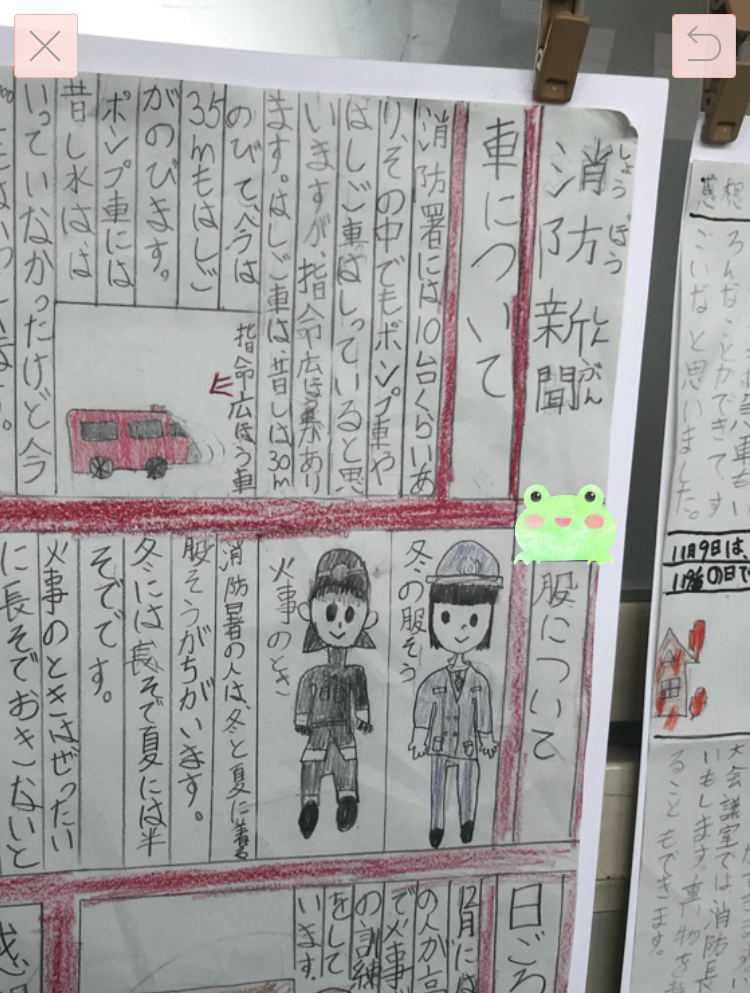 消防新聞
しょうぼう
しんぶん
車について
消防署には10台くらいあ
り、その中でもポンプ車や
はしご車はしっていると思
いますが、指令広ほう車があり
ます。はしご車は、昔しは30m
のびて、今は
35mもはしご
がのびます。
ポンプ車には
昔し水は、は
いっていなかったけど今
指命広ほう車
服について
冬の服そう
火事のとき
消防署の人は、冬と夏に着る
服そうがちがいます。
冬には長そで夏には半
そでです。
火事のときはぜったい
に長そでおきないと
日ごろ
12月には
の人が
で火事
の訓練
をして
います。
感想
ろんなことができて、す
ごいなと思いました。
11月9日は、
119の日で
大会議室では、消防長
いもします。重い物を
ることもできます。